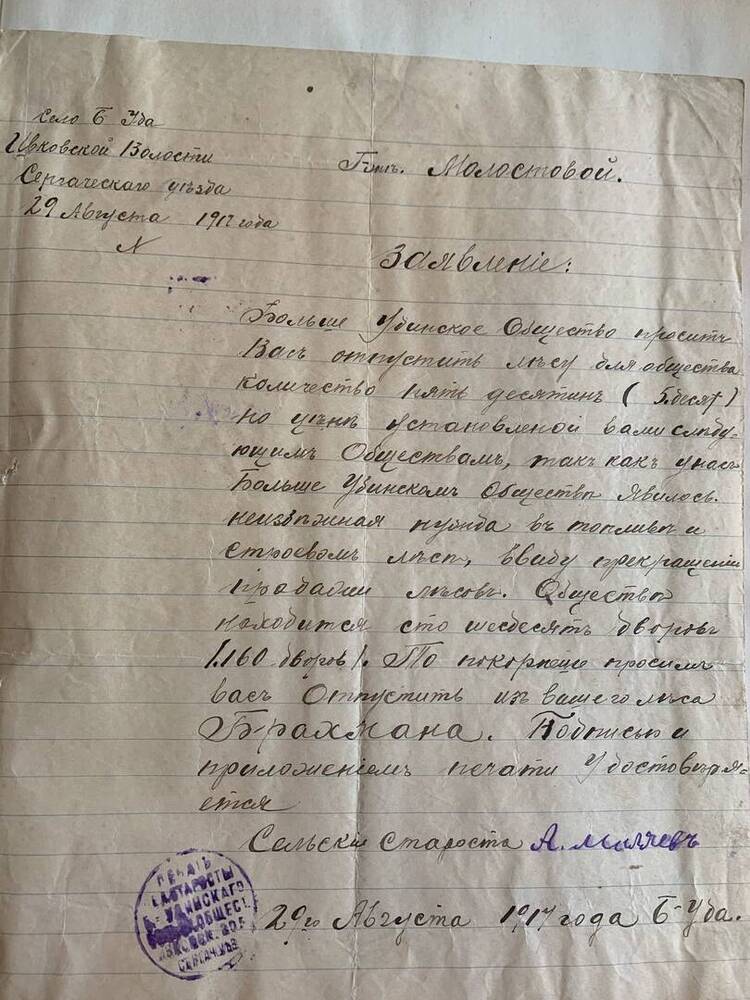 Село Б Уба
Ивковской Волости
Сергачскаго уѣзда
29 Августа 1917 года
N
Г-жѣ. Молостовой.
Заявленіе:
Больше Убинское Общество проситъ
Васъ отпустить лѣсу для общества
количество пять десятинъ ( 5 десят)
по цѣнѣ установленой вами слѣду-
ющимъ Обществамъ, такъ какъ у насъ
Больше Убинскомъ Обществѣ явилось.
неизбѣжная нужда въ топливѣ и
строевомъ лѣсѣ, ввиду прекращеніи
продажи лѣсовъ. Обществѣ
находится сто шесдесятъ дворовъ
/.160 дворов/. То покорнеше просимъ
васъ Отпустить изъ вашего лѣса
Б-рахмана. Подписью и
приложеніемъ печати Удостовѣря=
ется
Сельскіе Староста А.
29го Августа 1917 года Б-Уба.
ПЕЧАТЬ
СТАРОСТЫ
Б= УБИНСКАГО
ОБЩЕС.
ИВКОВСК. ВОЛ.
СЕРГАЧ. УѢЗ.